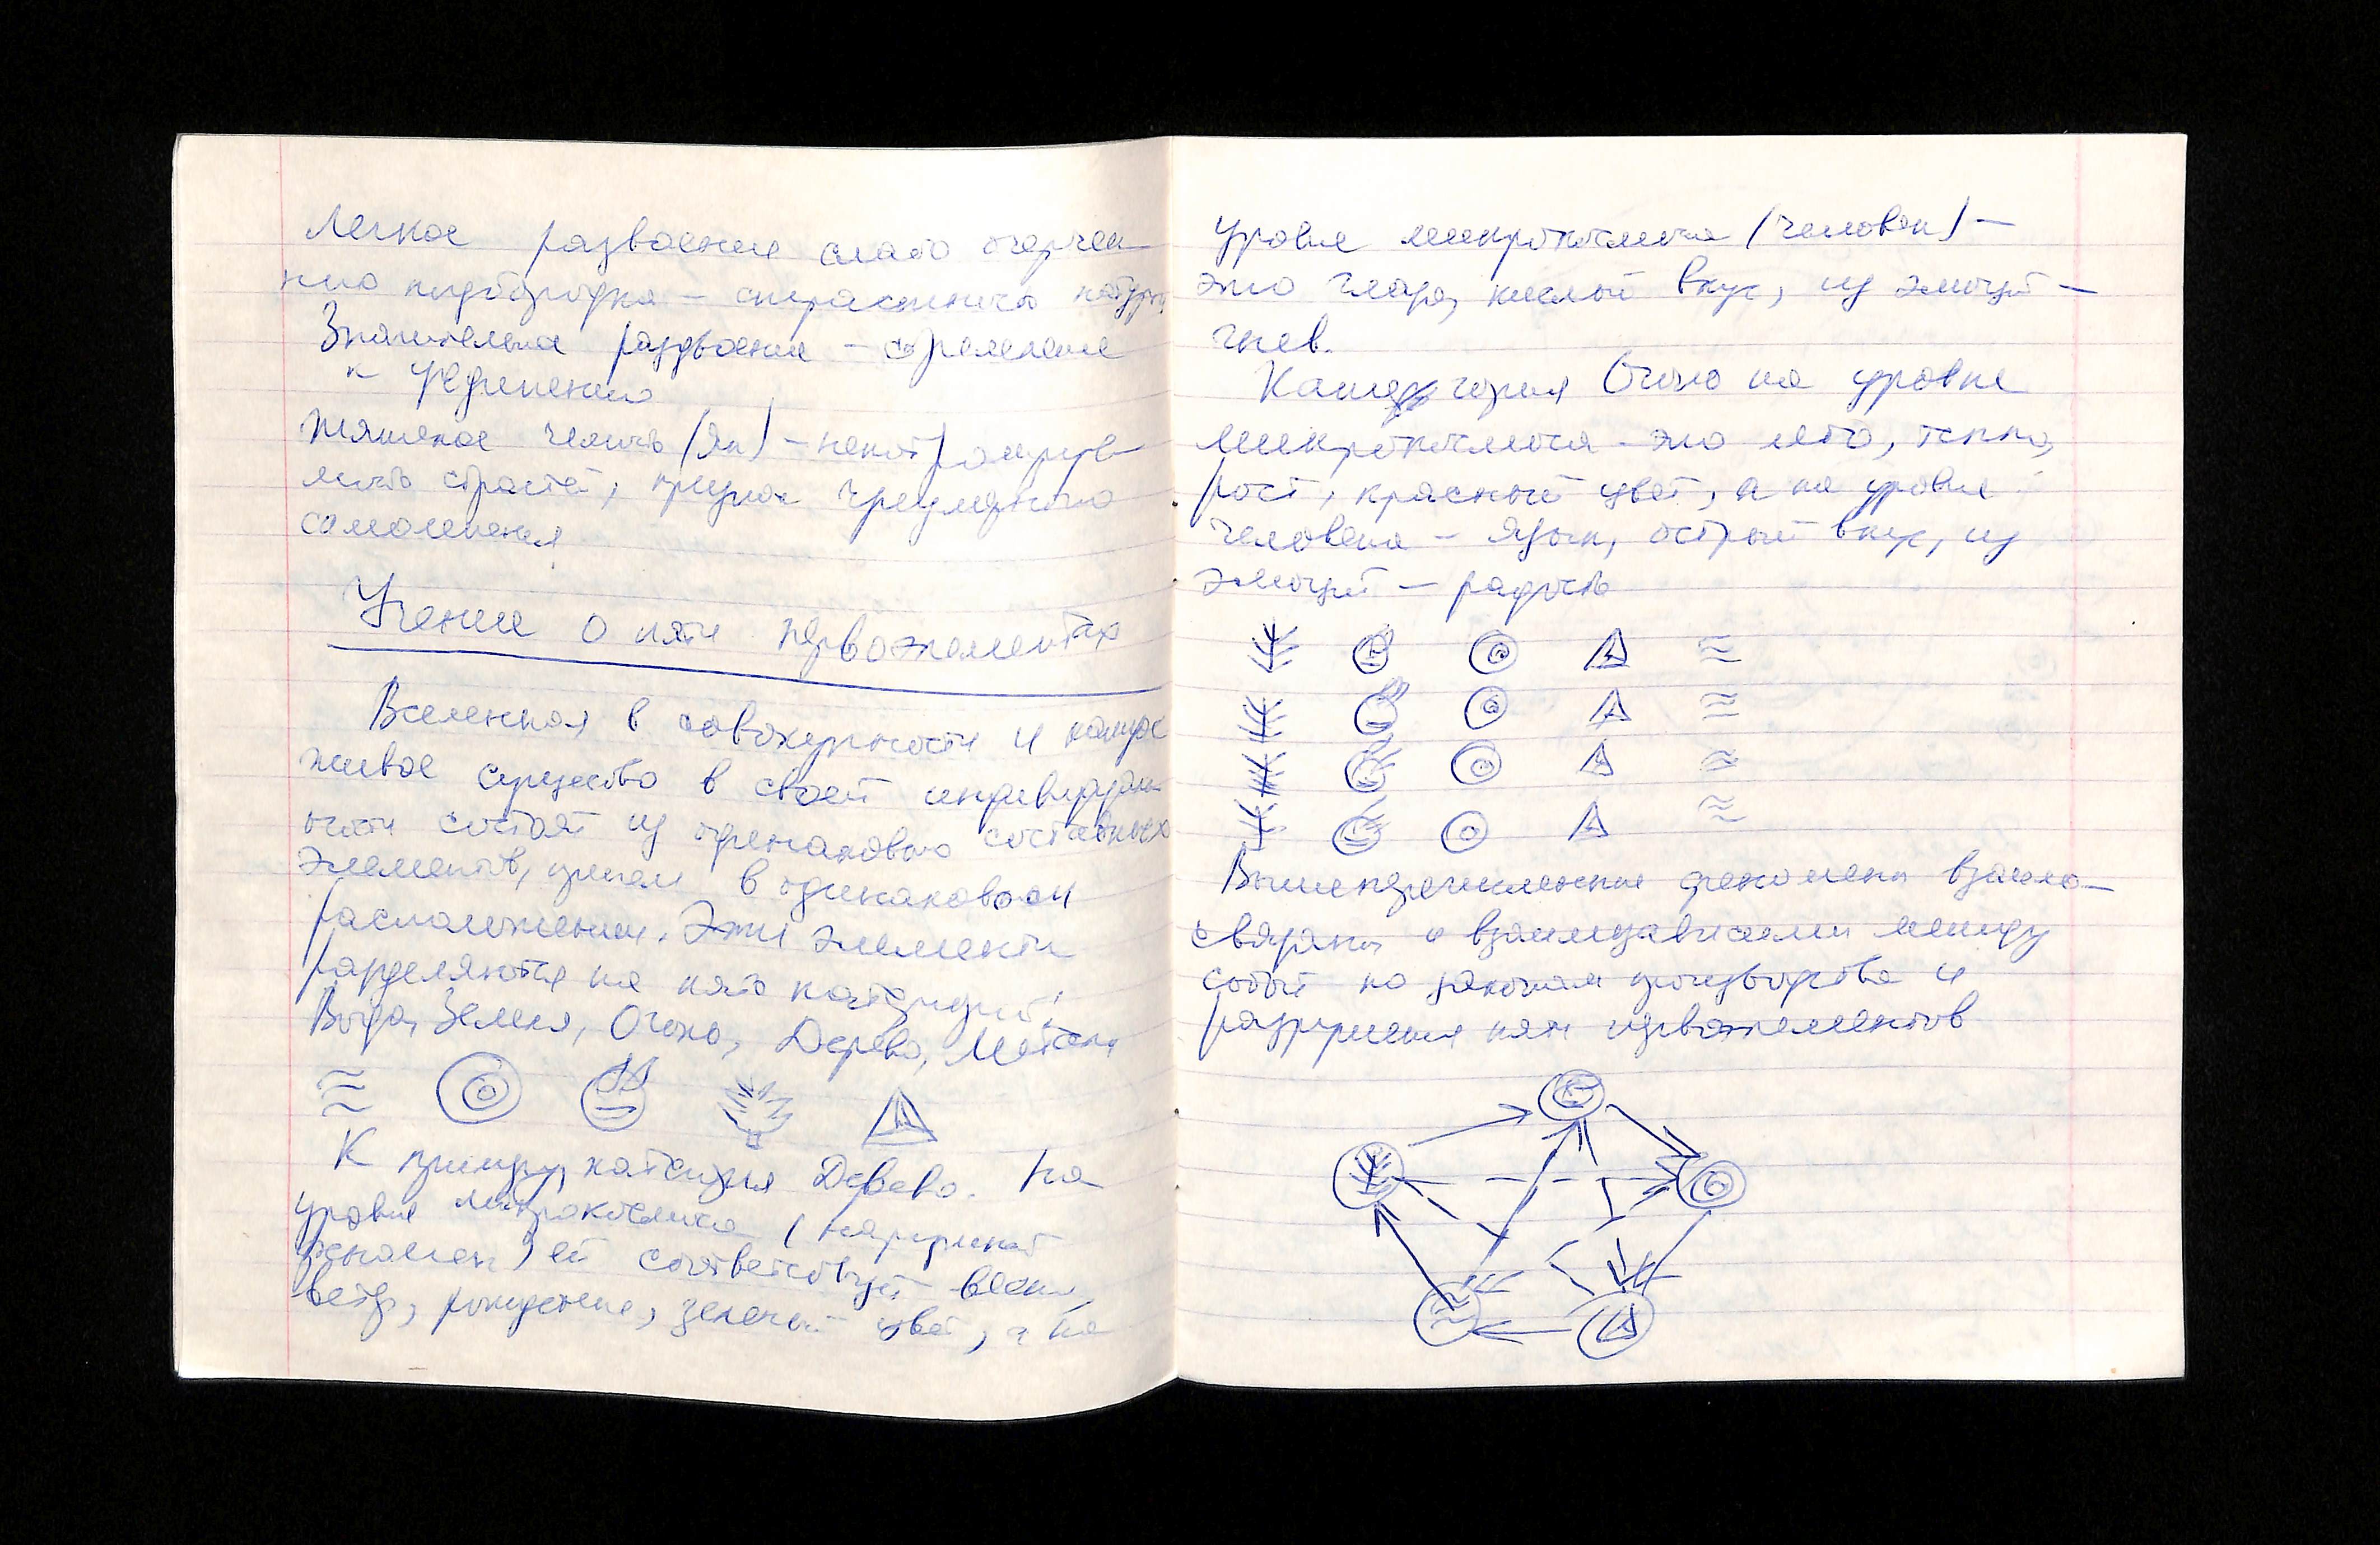 Легкое раздвоение слабо очерчен-
ного подбородка – страстность натуры
Значительное раздвоение – стремление
к уединению
Тяжелая челюсть (Ян) –
страстей, признак чрезмерного
самомнения
Учение о пяти первоэлементах
Вселенная в совокупности и каждое
живое существо в своей индивидуаль-
ности состоят из одинаково составных
элементов, причем в одинаковом
расположении. Эти элементы
разделяются на пять категорий:
Вода, Земля, Огонь, Дерево, Металл
К примеру, категория Дерево. На
уровне макрокосмоса (наружный
феномен) ей соответствует весна,
ветер, рождение, зеленый цвет, а на
уровне микрокосмоса (человек) –
это глаза, кислый вкус, из эмоций –
гнев.
Категория Огонь на уровне
макрокосмоса – это лето, тепло,
рост, красный цвет, а на уровне
человека – язык, острый вкус, из
эмоций – радость
Вышеперечисленные феномены взаимо-
связаны и взаимозависимы между
собой по законам производства и
разрушения пяти первоэлементов